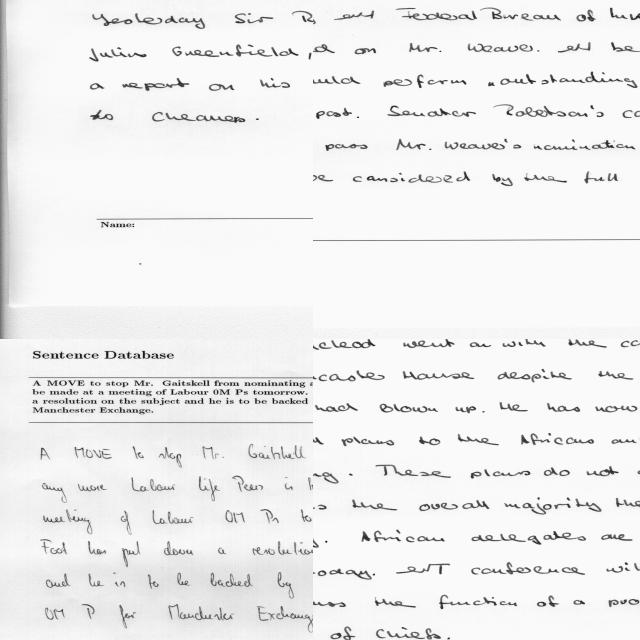 Yesterday Sir R
Julius Greenfield,
a report on his
to Chequers.
Name:
Federal Bureau of
on Mr. Weaver. be
perform outstanding
post. Senator Robertson's co
pass Mr. Weaver's nomination
be considered by the full
Sentence Database
A MOVE to stop Mr. Gaitskell from nominating
be made at a meeting of Labour 0M Ps tomorrow.
a resolution on the subject and he is to be backed
Manchester Exchange.
A MOVE to stop Mr. Gaitskell
any more Labour Life Peers is
meeting of Labour 0M Ps to
Foot has put down a resolution
and he is to be backed by
0M P for Manchester Exchang
cleod went on with the co
caster House despite the
had blown up. He has now
plans to the Africans an
ng. These plans do not
the overall majority the
African delegates are
oday. conference wil
uss the function of a pro
of Chiefs.